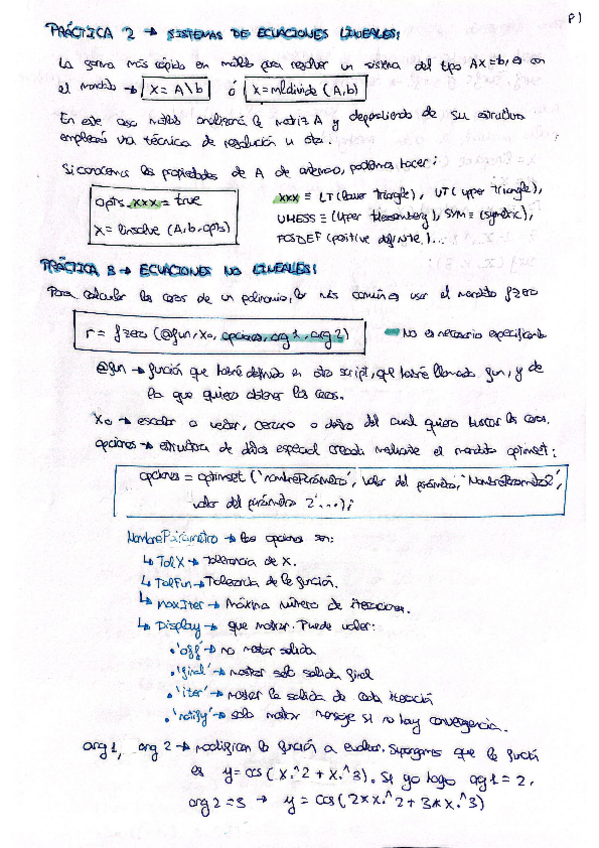 P1
PRÁCTICA 2 → SISTEMAS DE ECUACIONES LINEALES:
La forma más rápida en matlab para resolver un sistema del tipo Ax=b, es con
el mandato → x = A\b ó x = mldivide (A,b)
En este caso matlab analizará la matriz A y dependiendo de su estructura
empleará una técnica de resolución u otra.
Si conocemos las propiedades de A de antemano, podemos hacer:
opts.xxx = true
x = linsolve (A,b,opts)
xxx ≡ LT (lower triangle), UT (upper triangle),
UHESS ≡ (upper Hessenberg), SYM ≡ (symetric),
POSDEF (positive definite)...
PRÁCTICA 3 → ECUACIONES NO LINEALES:
Para calcular los ceros de un polinomio, lo más común es usar el mandato fzero
r = fzero (@fun, x₀, opciones, arg 1, arg 2) No es necesario especificarlo
@fun → función que habré definido en otro script, que habré llamado fun, y de
la que quiero obtener los ceros.
x₀ → escalar o vector, cercano o dentro del cual quiero buscar los ceros.
opciones → estructura de datos especial creada mediante el mandato optimset:
opciones = optimset ('nombreParámetro', valor del parámetro, 'NombreParametro2',
valor del parámetro 2'...);
NombreParámetro → las opciones son:
↳ TolX → tolerancia de x.
↳ TolFun → Tolerancia de la función.
↳ maxIter → Máximo número de iteraciones.
↳ Display → que mostrar. Puede valer:
• 'off' → no mostrar salida
• 'final' → mostrar solo salida final
• 'iter' → mostrar la salida de cada iteración
• 'notify' → solo mostrar mensaje si no hay convergencia.
arg 1, arg 2 → modifican la función a evaluar. Supongamos que la función
es y = cos (x.^2 + x.^3). Si yo hago arg 1 = 2,
arg 2 = 3 → y = cos (2*x.^2 + 3*x.^3)